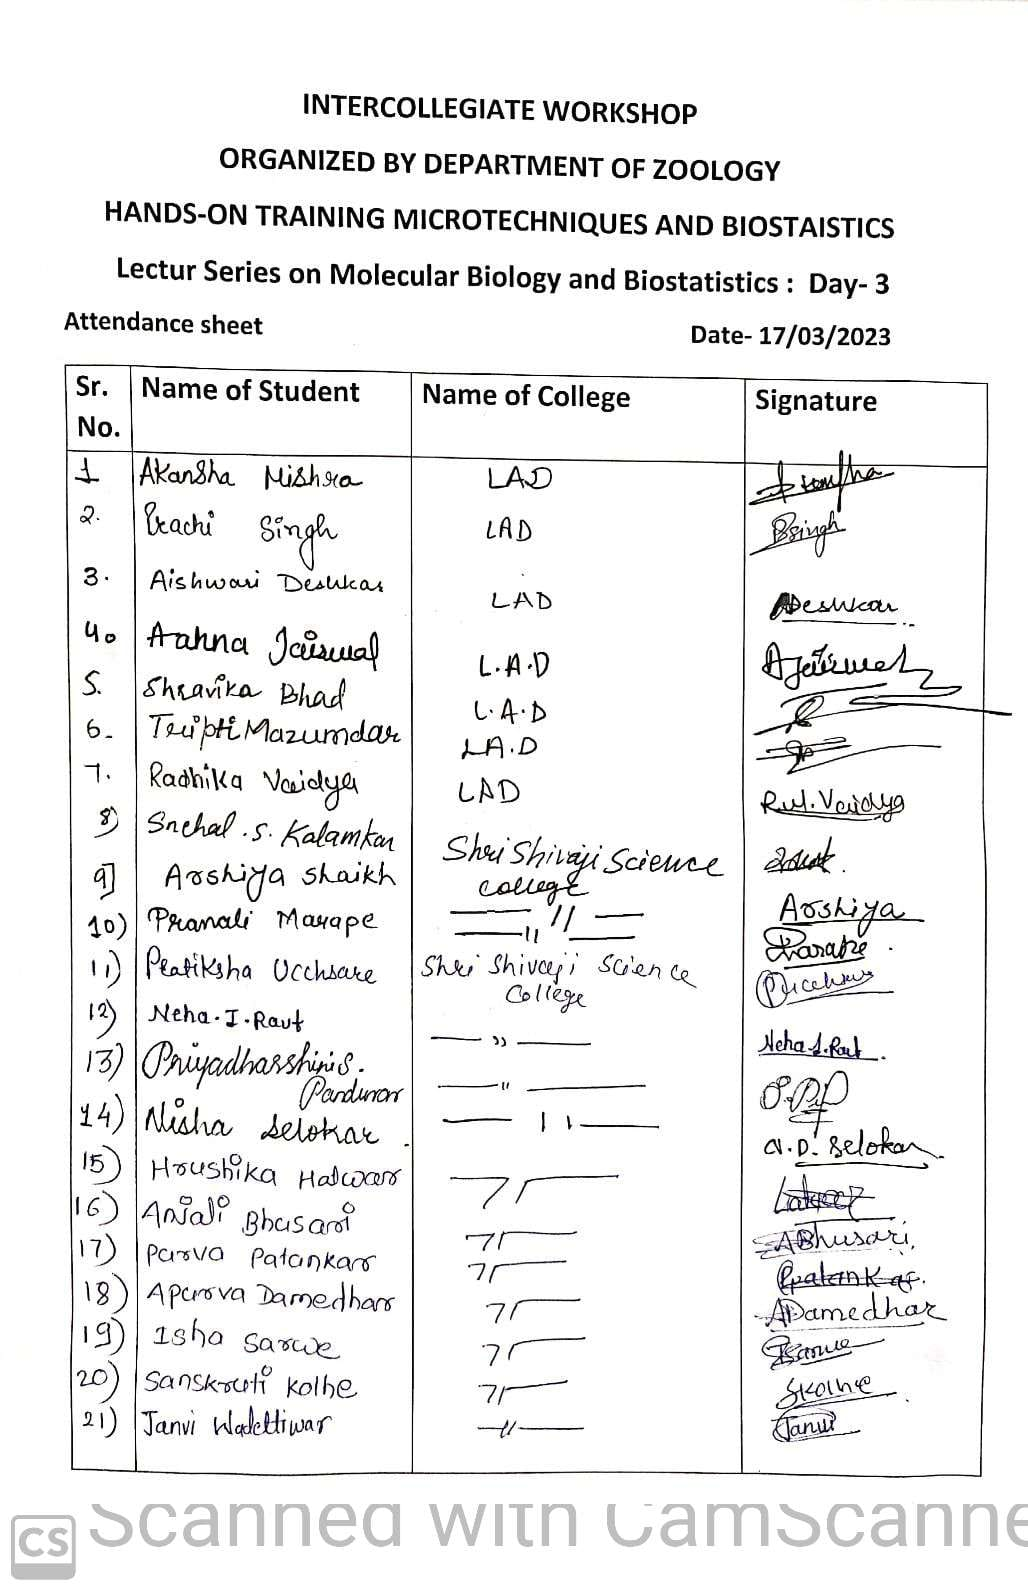 INTERCOLLEGIATE WORKSHOP
ORGANIZED BY DEPARTMENT OF ZOOLOGY
HANDS-ON TRAINING MICROTECHNIQUES AND BIOSTAISTICS
Lectur Series on Molecular Biology and Biostatistics : Day- 3
Attendance sheet Date- 17/03/2023
Sr. No. Name of Student Name of College Signature
1 Akansha Mishra LAD
2. Prachi Singh LAD PSingh
3. Aishwari Deshkar LAD ADeshkar
4. Aahna Jaiswal L.A.D AJaiswal
5. Shravika Bhad L.A.D
6- Tripti Mazumdar L.A.D
7. Radhika Vaidya LAD R.U.Vaidya
8) Snehal .S. Kalamkar Shri Shivaji Science College
9] Arshiya Shaikh — // — Arshiya
10) Pranali Marape — 11 —
11) Pratiksha Ucchsare Shri Shivaji Science College
12) Neha.I.Raut — " — Neha.I.Raut
13) Priyadharshini S. Panduran — " —
14) Nisha Selokar . — 11 — N.D. Selokar
15) Hrushika Halwar — 11 —
16) Anjali Bhusari — 11 — ABhusari.
17) Parva Patankar — 11 — Ppatankar.
18) Apurva Damedhar — 11 — ADamedhar
19) Isha Sarwe — 11 — ISarwe
20) Sanskruti Kolhe — 11 — SKolhe
21) Janvi Wadettiwar — 11 — Janvi
CS Scanned with CamScanne